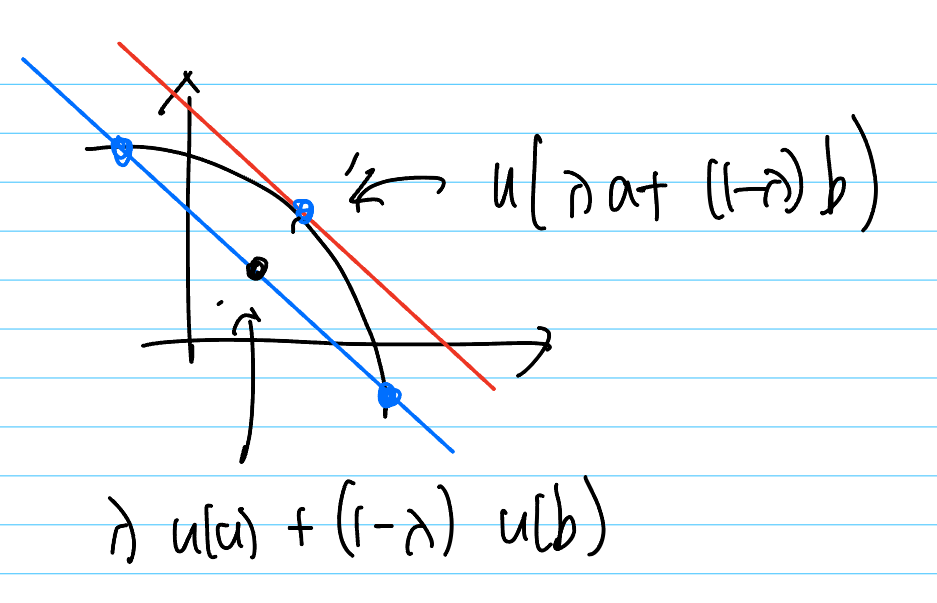 u(λa+(1-λ)b)
λu(a)+(1-λ)u(b)